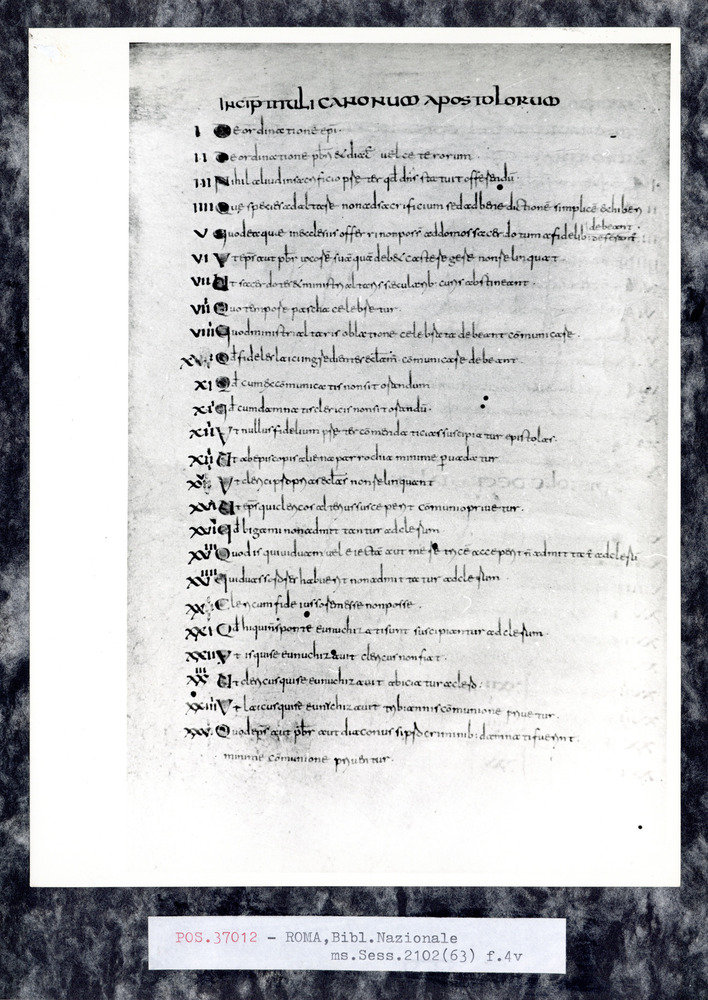 INCIP TITULI CANONUM APOSTOLORUM
I De ordinatione epi.
II De ordinatione pbri & diac uel ceterorum.
III Nihil aliud in sacrificio pter qd dns statuit offerendu
IIII Que species ad altare non ad sacrificium sed ad benedictione simplice exhiberi
debeant.
V Quod ea que in ecclesiis offerri non poss ad domos sacerdotum a fidelib deferant.
VI Ut eps aut pbr uxore sua qua debet caste regere non relinquat
VII Ut sacerdotes & ministri altaris saecularib. curis abstineant.
VIII Quo tempore pascha celebretur.
VIIII Quod ministri altaris oblatione celebrata debeant comunicare.
X Qd fideles laici ingredientes ecclam. comunicare debeant.
XI Qd cum excomunicatis non sit orandum
XII Qd cum damnatis clericis non sit orandu.
XIII Ut nullus fidelium pter comendaticias suscipiatur epistolas.
XIIII Ut ab episcopis aliena parrochia minime puadatur.
XV Ut clerici pprias ecclas non relinquant
XVI Ut eps qui clericos alterius susceperit comunio priuetur.
XVII Qd bigami non admittantur ad clerum.
XVIII Quod is qui uiduam uel eiectam aut meretrice acceperit n admittat ad clerum
XVIIII Qui duas sorores habuerit non admittatur ad clerum.
XX Clericum fideiussorem esse non posse.
XXI Qd hi qui n sponte eunuchizati sunt suscipiantur ad clerum.
XXII Ut is qui se eunuchizauit clericus non fiat.
XXIII Ut clericus qui se eunuchizauit abiciatur a clero.
XXIIII Ut laicus qui se eunuchizauit tribus annis comunione priuetur.
XXV Quod eps aut pbr aut diaconus si p criminib. damnati fuerint.
minime comunione priuentur.
POS.37012 - ROMA,Bibl.Nazionale
ms.Sess.2102(63) f.4v